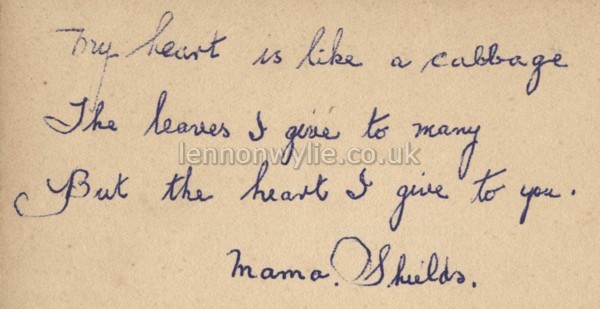 My heart is like a cabbage
The leaves I give to many
lennonwylie.co.uk
But the heart I give to you.
Mama. Shields.